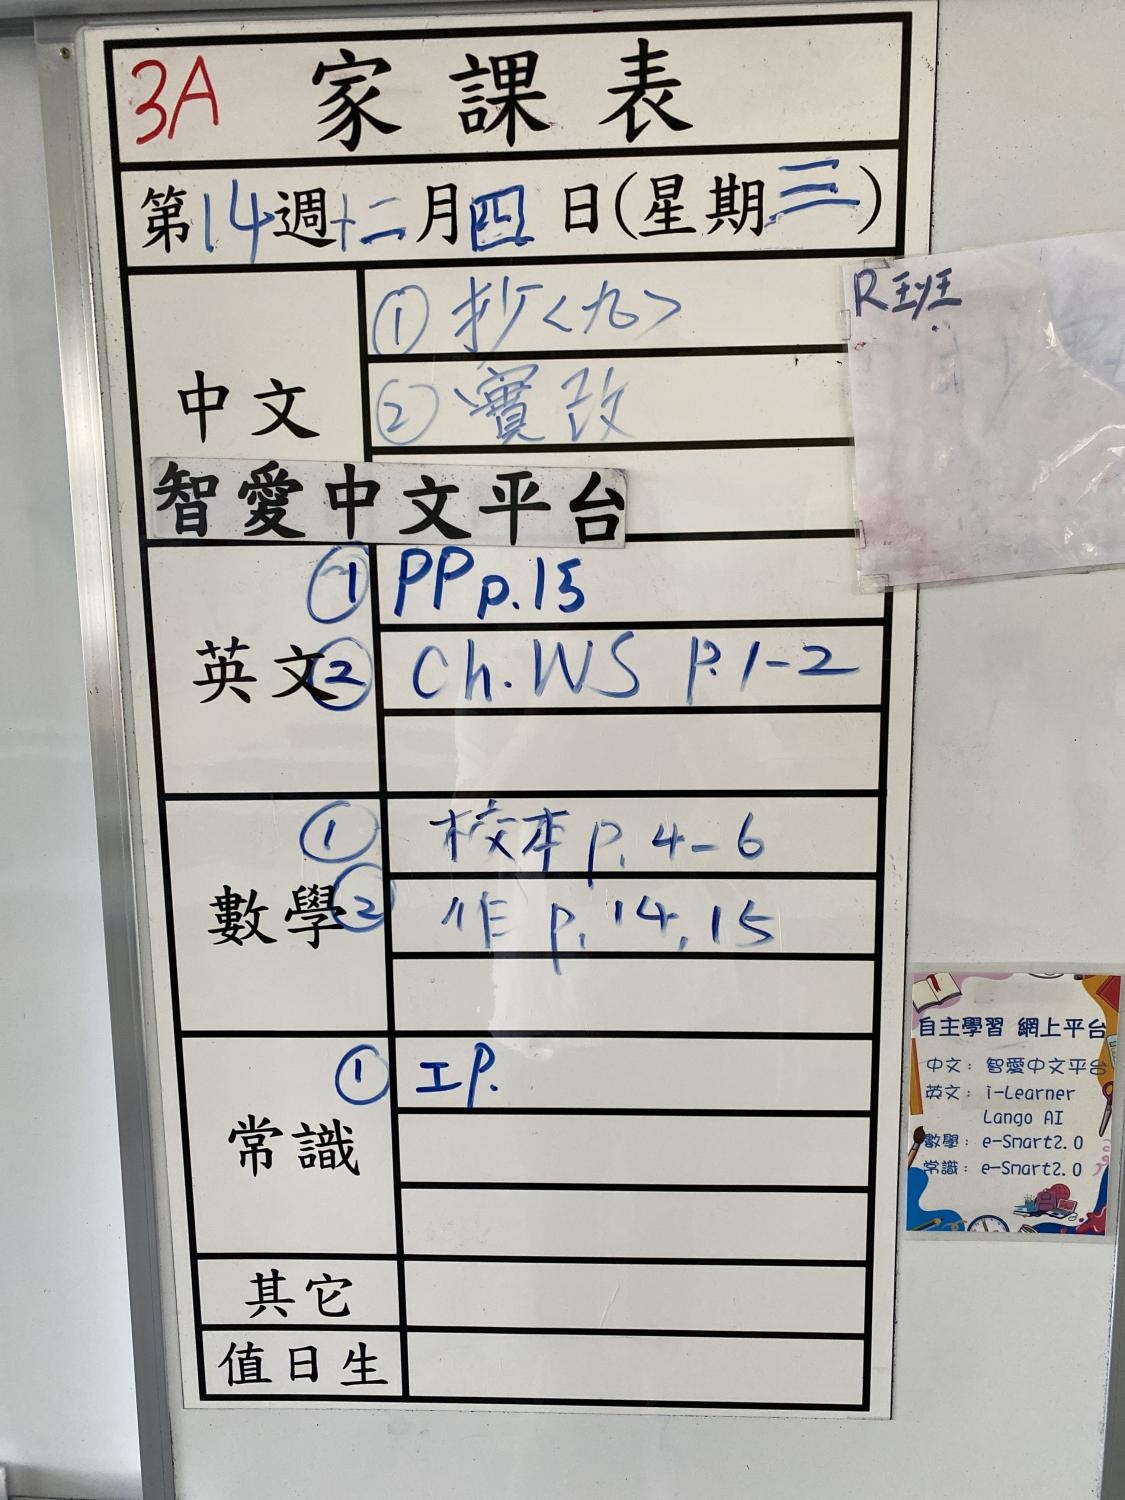 3A 家課表
第14週十二月四日(星期三)
中文
① 抄<九>
② 實改
智愛中文平台
英文
① PP p.15
② Ch.WS p.1-2
數學
① 校本 p.4-6
② 作 p.14,15
常識
① IP.
其它
值日生
R班
自主學習 網上平台
中文：智愛中文平台
英文：i-Learner
Lango AI
數學：e-Smart2.0
常識：e-Smart2.0